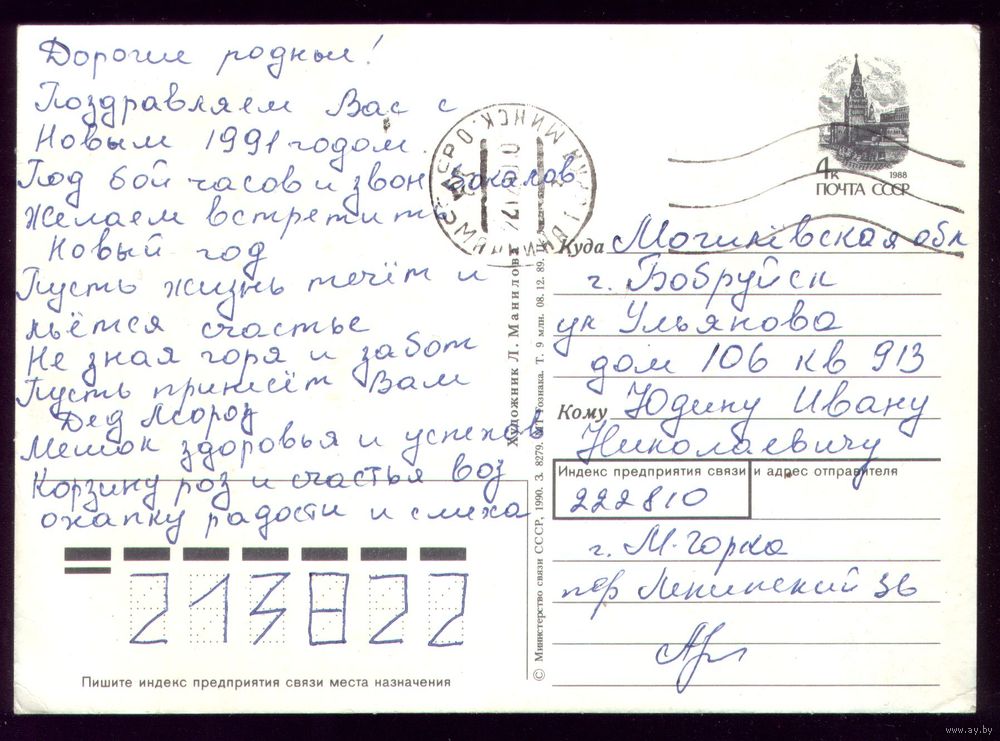 Дорогие родные!
Поздравляем Вас с
Новым 1991 годом.
Под бой часов и звон бокалов
Желаем встретить
Новый год
Пусть жизнь течёт и
льётся счастье
Не зная горя и забот
Пусть принесёт Вам
Дед Мороз
Мешок здоровья и успехов
Корзину роз и счастья воз
охапку радости и смеха
213822
Пишите индекс предприятия связи места назначения
© Министерство связи СССР, 1990. З. 8279. МТ Гознака. Т. 9 млн. 08. 12. 89.
Художник Л. Манилова
МИНСК
4к
1988
ПОЧТА СССР
Куда Могилёвская обл
г. Бобруйск
ул Ульянова
дом 106 кв 913
Кому Юдину Ивану
Николаевичу
Индекс предприятия связи и адрес отправителя
222810
г. М-Горка
пер Ленинский 3б
www.ay.by